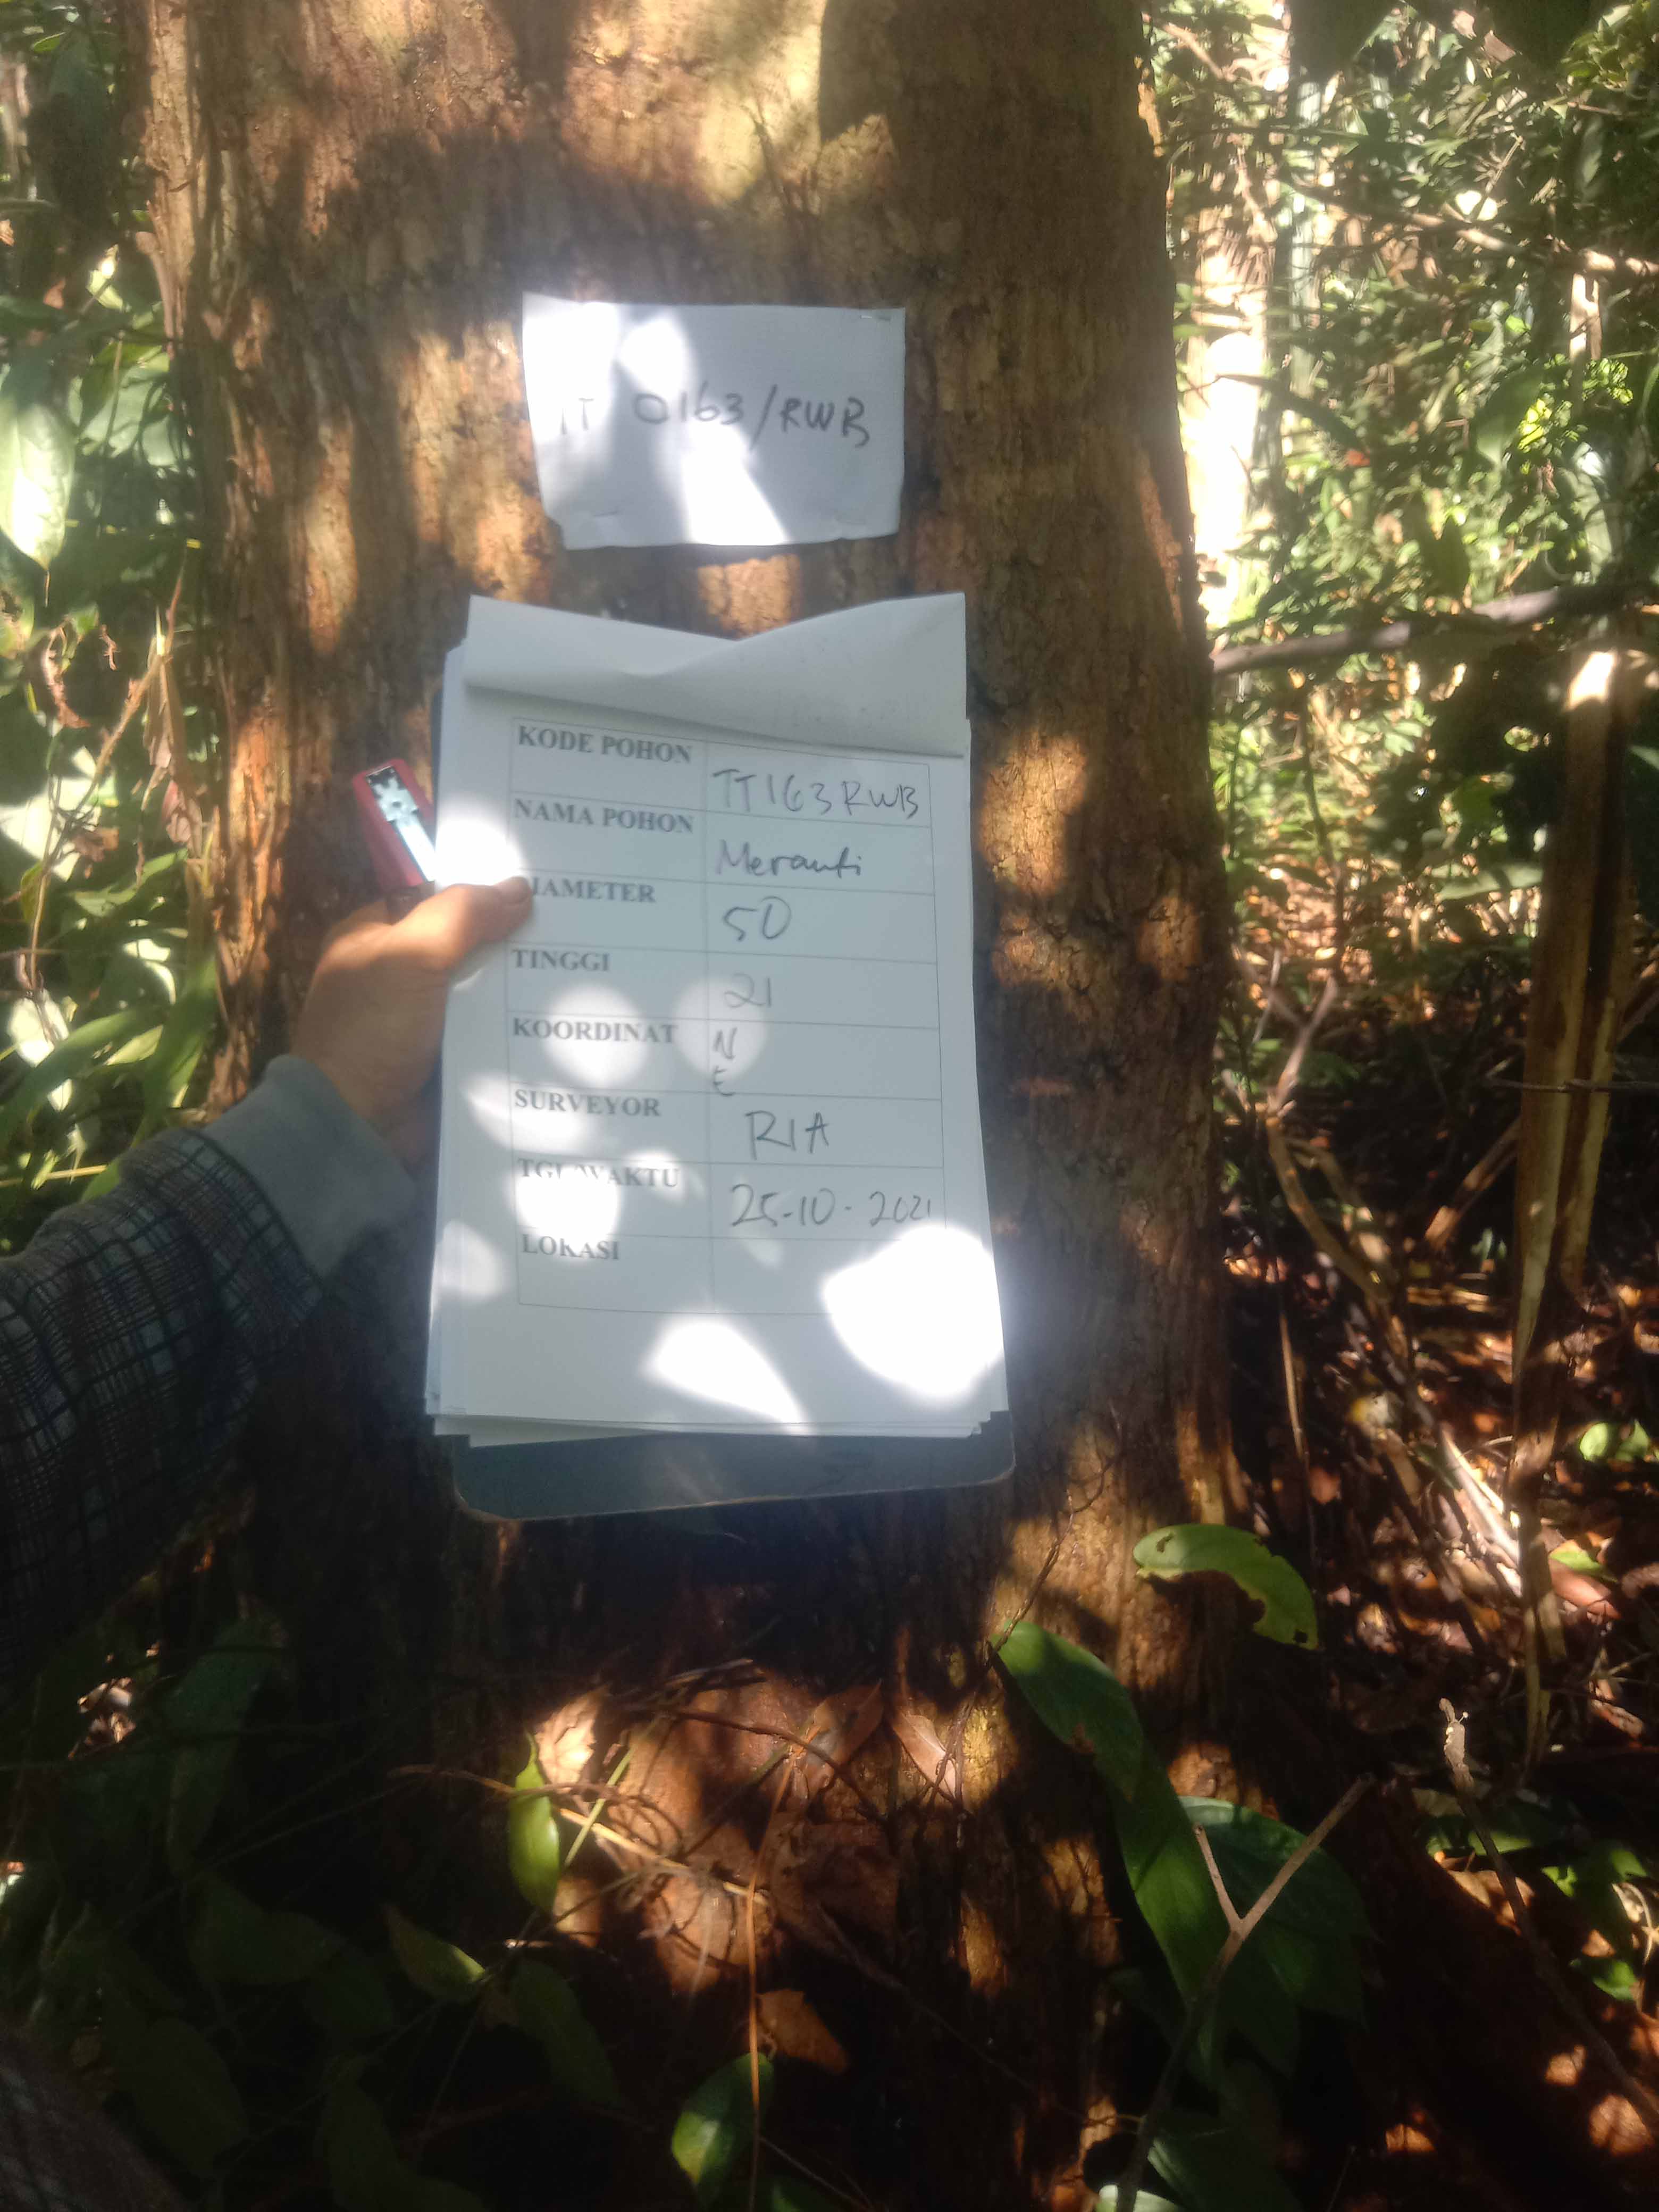 TT 0163/RWB
KODE POHON TT163RWB
NAMA POHON Meranti
DIAMETER 50
TINGGI 21
KOORDINAT N
E
SURVEYOR RIA
TGL/WAKTU 25-10-2021
LOKASI